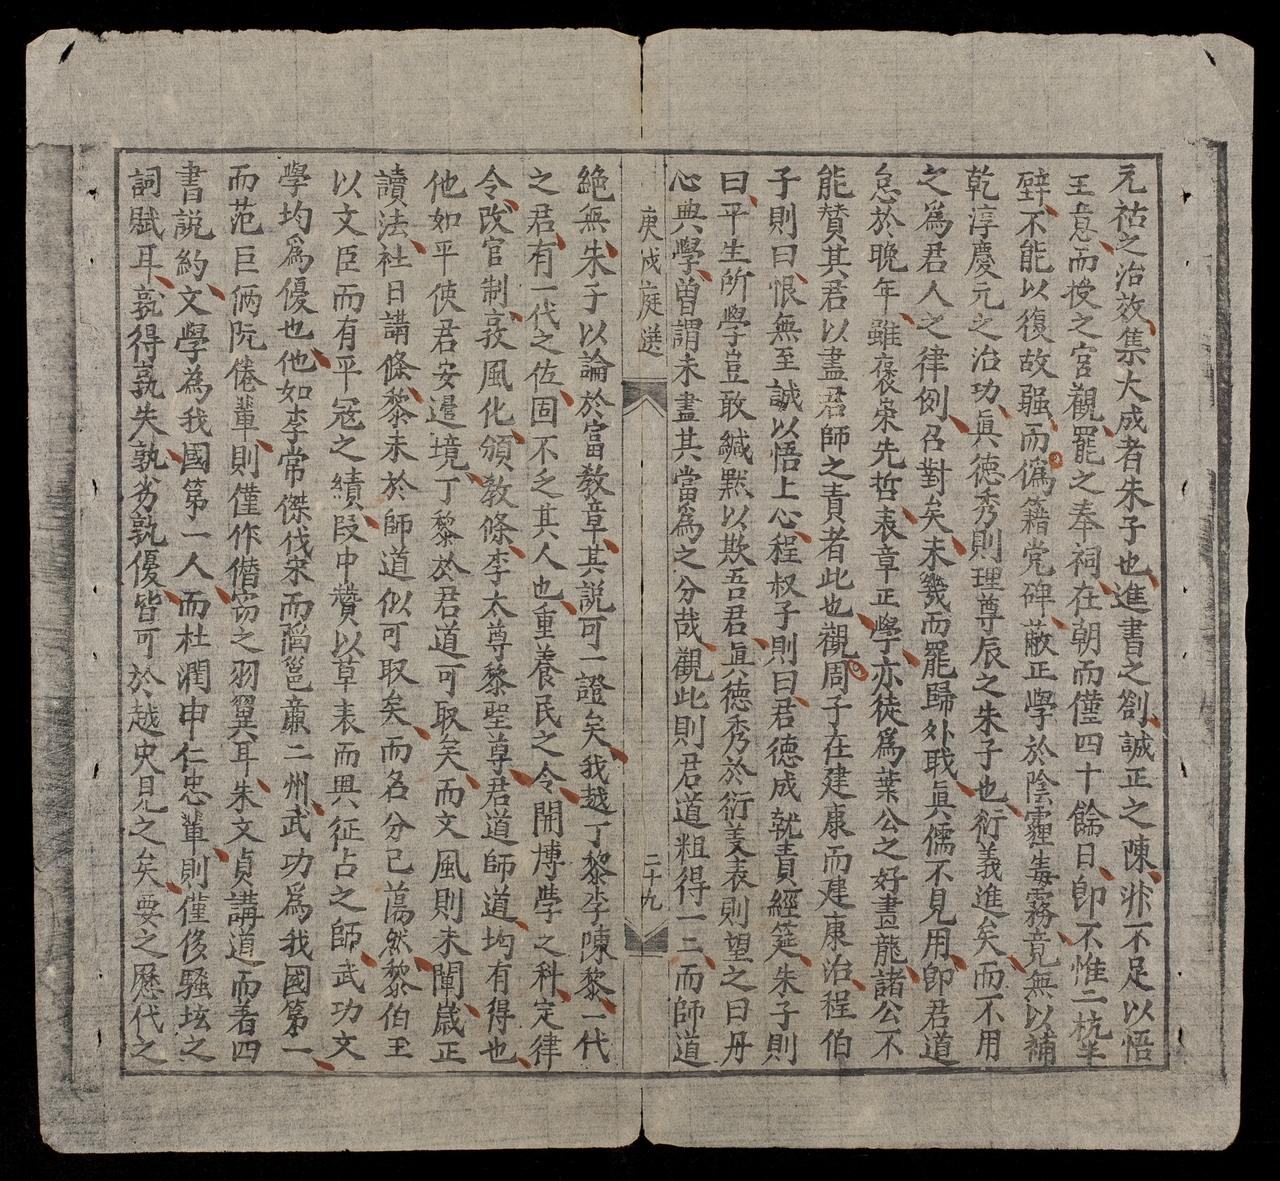 元祐之治效集大成者朱子也進書之劄誠正之陳非不足以悟
王意而授之宮觀罷之奉祠在朝而僅四十餘日卽不惟二杭半
壁不能以復故疆而僞籍党碑蔽正學於陰霾毒霧竟無以補
乾淳慶元之治功眞德秀則理尊辰之朱子也衍義進矣而不用
之爲君人之律例召對矣未幾而罷歸外职眞儒不見用卽君道
怠於晚年雖褒崇先哲表章正學亦徒爲葉公之好畫龍諸公不
能賛其君以盡君師之責者此也觀周子在建康而建康治程伯
子則曰恨無至誠以悟上心程叔子則曰君德成就責經筵朱子則
曰平生所學豈敢緘默以欺吾君眞德秀於衍義表則望之曰丹
心典學曽謂未盡其當爲之分哉觀此則君道粗得一二而師道
庚戌庭選
二十九
絶無朱子以論於富教章其説可一證矣我越丁黎李陳黎一代
之君有一代之佐固不乏其人也重養民之令開博學之科定律
令改官制敦風化頒教條李太尊黎聖尊君道師道均有得也
他如平使君安邊境丁黎於君道可取矣而文風則未闡歲正
讀法社日講條黎未於師道似可取矣而名分已蕩然黎伯玉
以文臣而有平寇之績段中賛以草表而興征占之師武功文
學均爲優也他如李常傑伐宋而䧟邕亷二州武功爲我國第一
而范巨倆阮倦輩則僅作僣窃之羽翼耳朱文貞講道而著四
書説約文學為我國第一人而杜潤申仁忠輩則僅侈騷坛之
詞賦耳孰得孰失孰劣孰優皆可於越史見之矣要之歷代之